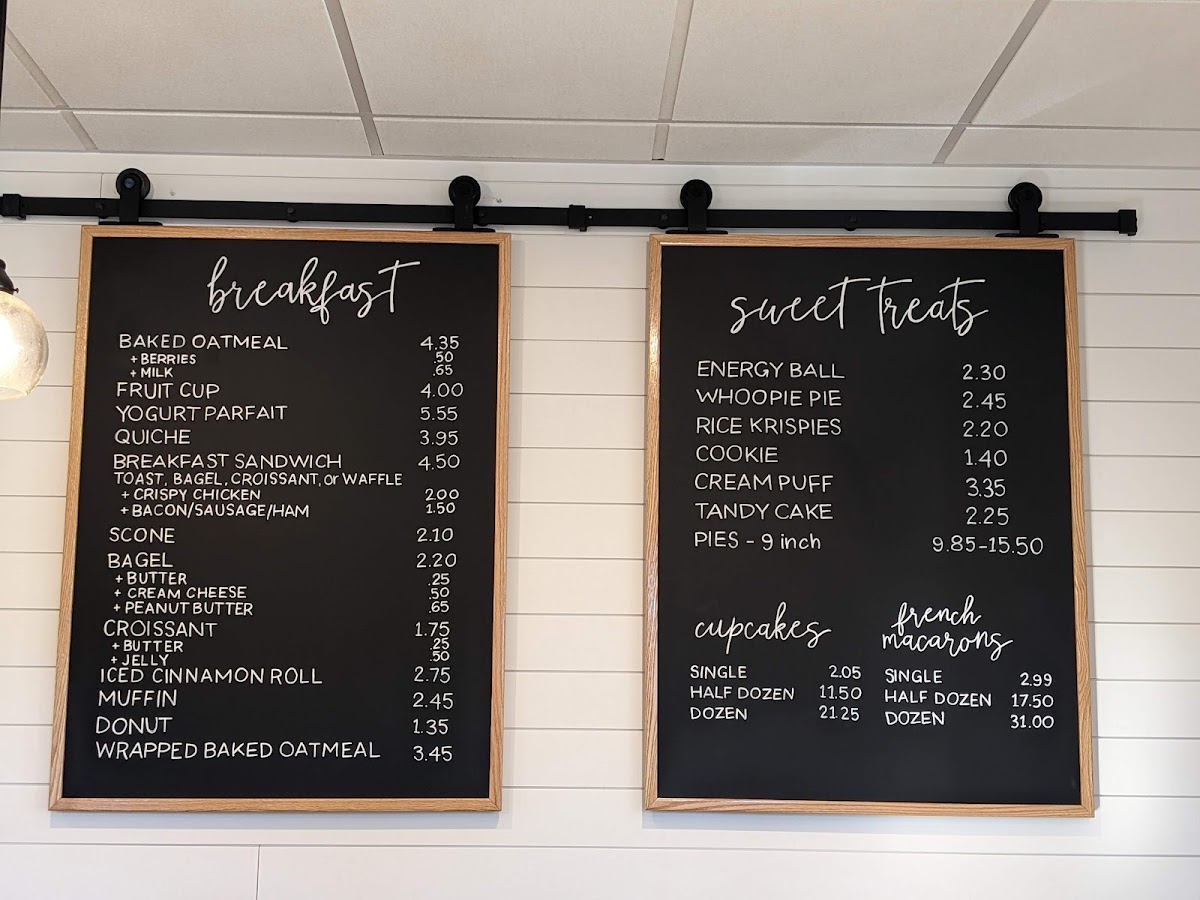 breakfast
BAKED OATMEAL 4.35
+ BERRIES .50
+ MILK .65
FRUIT CUP 4.00
YOGURT PARFAIT 5.55
QUICHE 3.95
BREAKFAST SANDWICH 4.50
TOAST, BAGEL, CROISSANT, or WAFFLE
+ CRISPY CHICKEN 2.00
+ BACON/SAUSAGE/HAM 1.50
SCONE 2.10
BAGEL 2.20
+ BUTTER .25
+ CREAM CHEESE .50
+ PEANUT BUTTER .65
CROISSANT 1.75
+ BUTTER .25
+ JELLY .50
ICED CINNAMON ROLL 2.75
MUFFIN 2.45
DONUT 1.35
WRAPPED BAKED OATMEAL 3.45
sweet treats
ENERGY BALL 2.30
WHOOPIE PIE 2.45
RICE KRISPIES 2.20
COOKIE 1.40
CREAM PUFF 3.35
TANDY CAKE 2.25
PIES - 9 inch 9.85-15.50
cupcakes
SINGLE 2.05
HALF DOZEN 11.50
DOZEN 21.25
french
macarons
SINGLE 2.99
HALF DOZEN 17.50
DOZEN 31.00